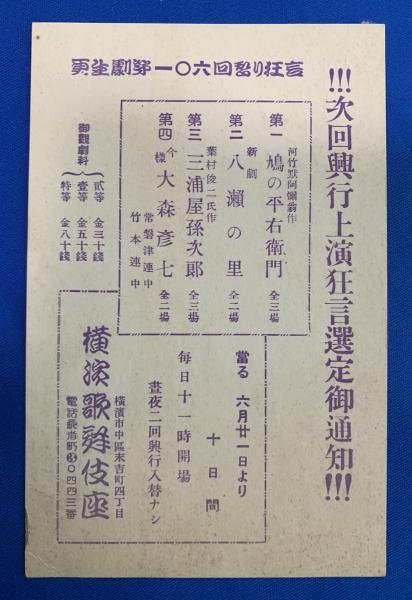 !!!次回興行上演狂言選定御通知!!!
更生劇第一〇六回替り狂言
河竹默阿彌翁作
第一 鳩の平右衛門 全三場
新劇
第二 八瀬の里 全二場
葉村俊二氏作
第三 三浦屋孫次郎 全三場
第四 今樣 大森彦七 全二場
常磐津連中
竹本連中
御觀劇料
貳等 金三十錢
壹等 金五十錢
特等 金八十錢
當る 六月廿一日より
十日間
毎日十一時開場
晝夜二回興行入替ナシ
横濱市中區末吉町四丁目
横濱歌舞伎座
電話長者町③〇四四三番